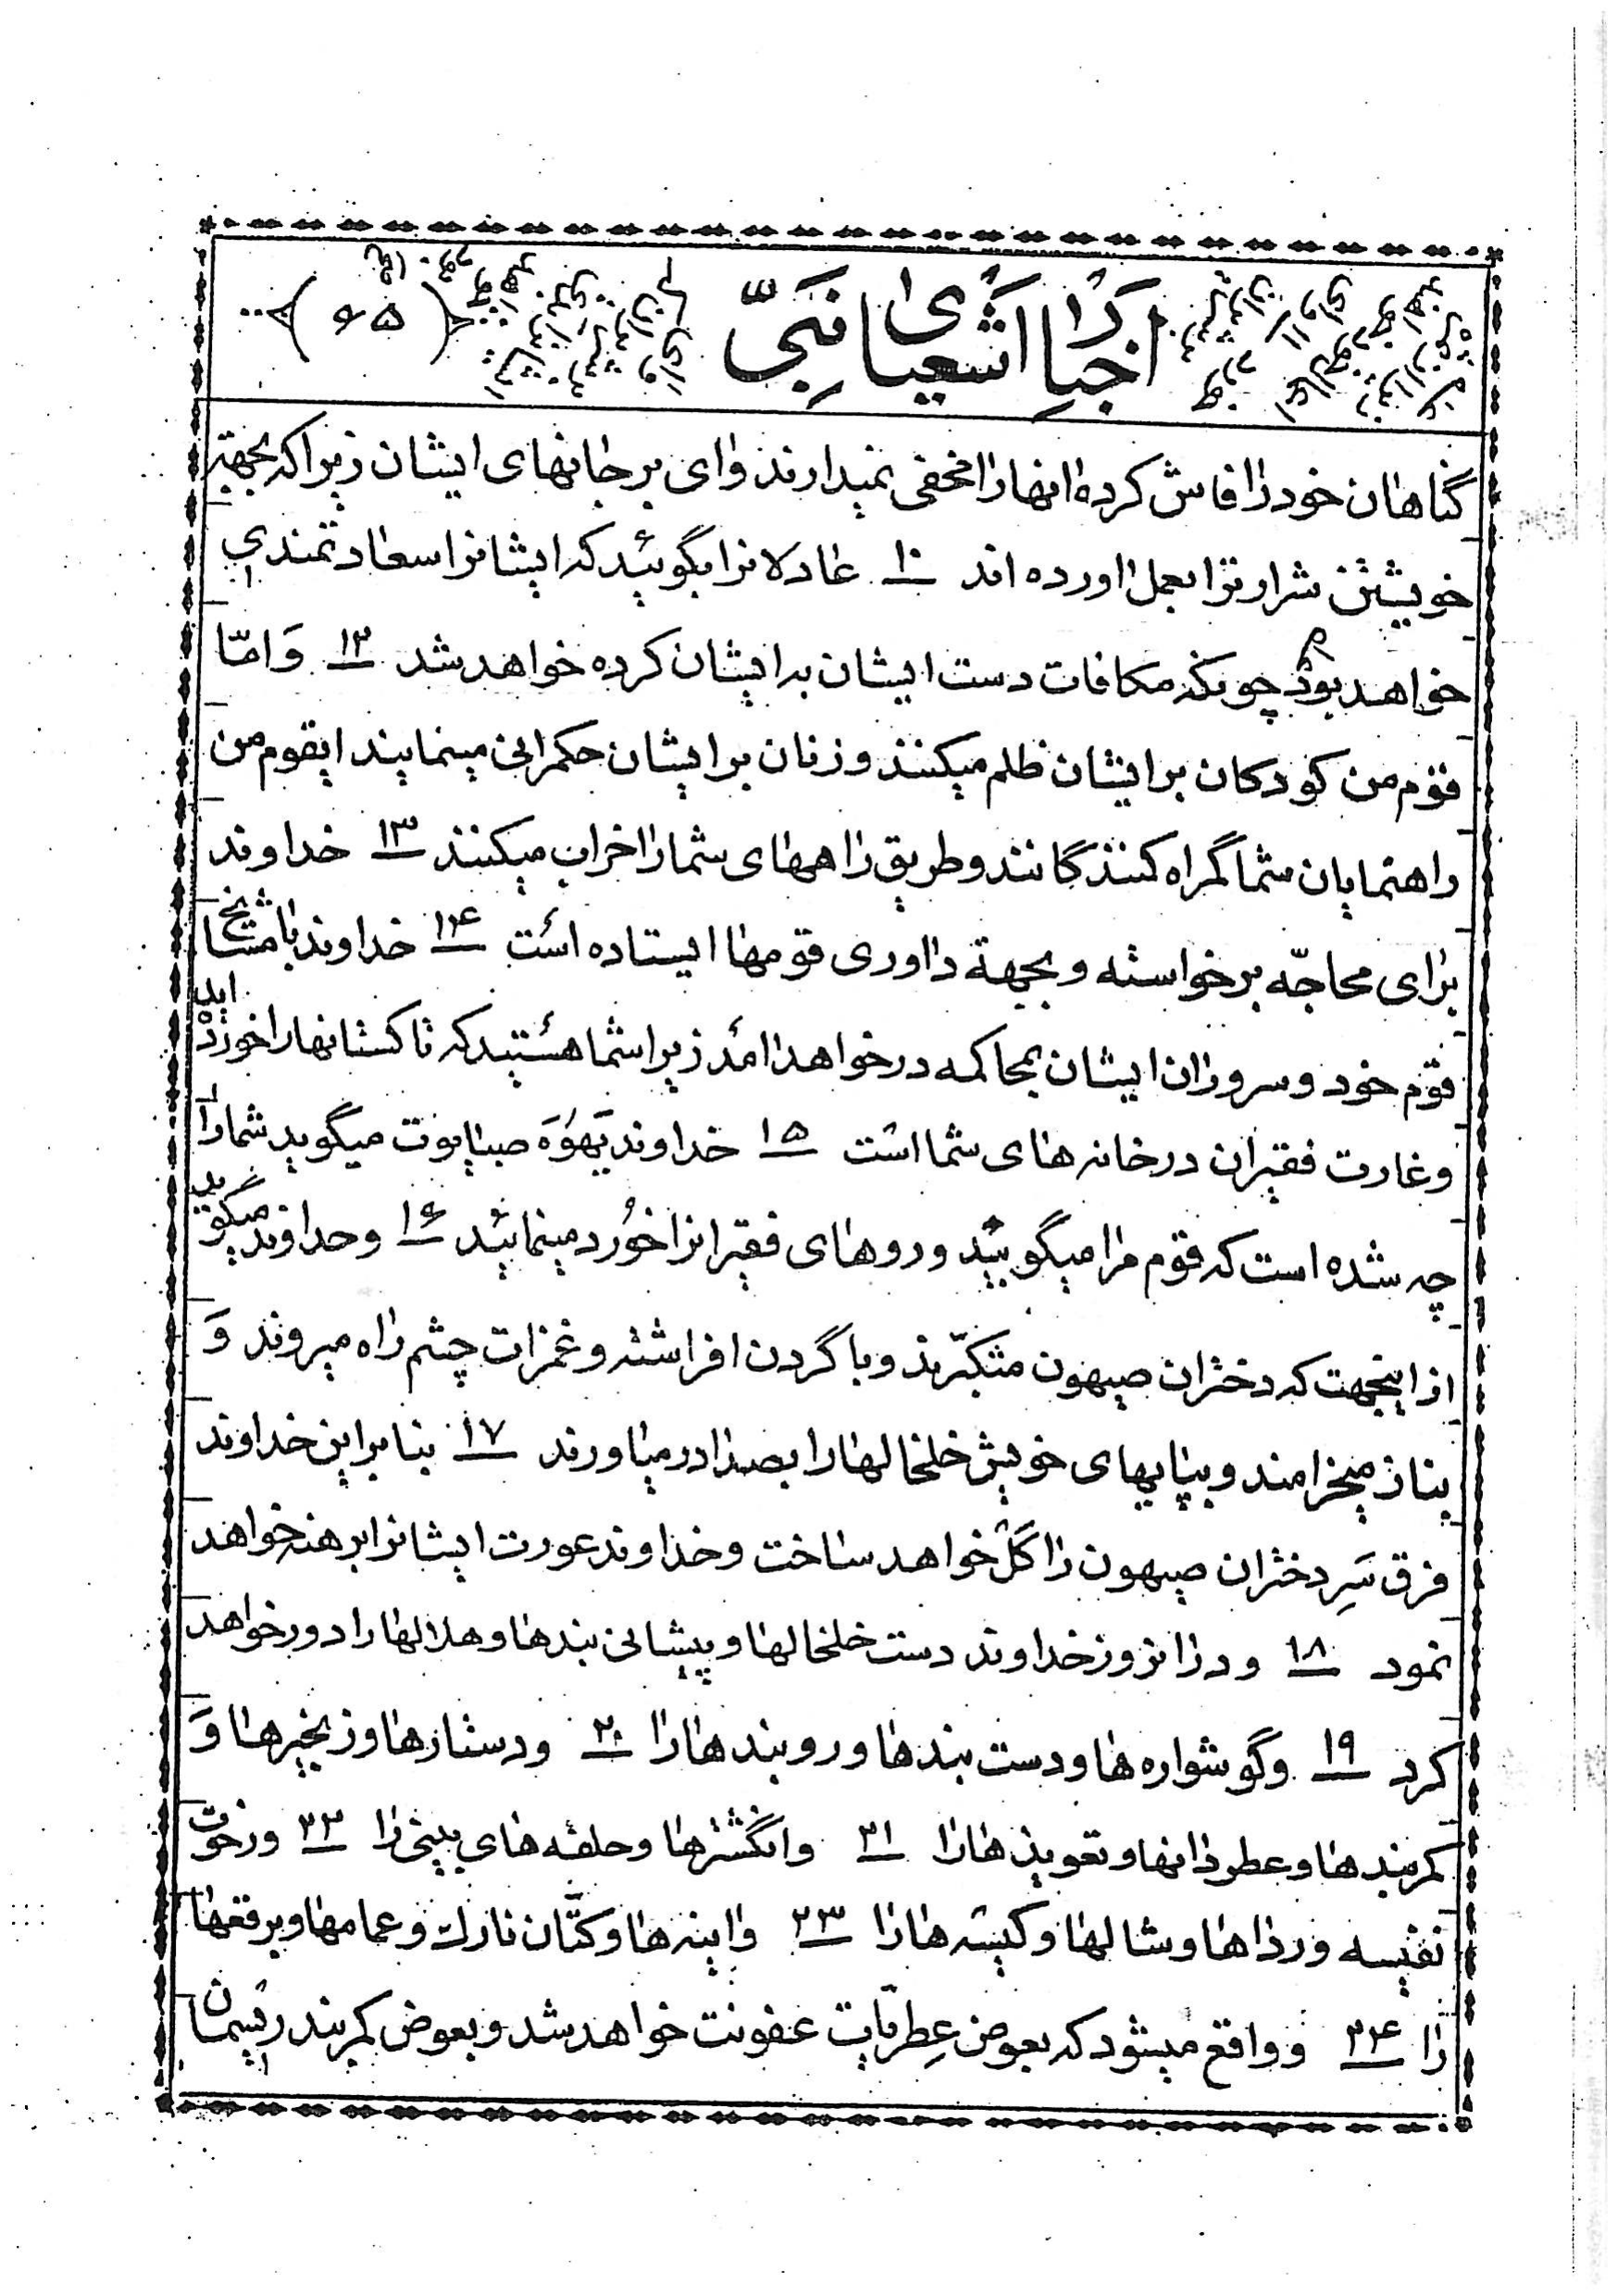 اخبار اشعیای نبیّ
﴿ ۶۵ ﴾
گناهان خود را فاش کرده انها را مخفی نمیدارند وای بر جانهای ایشان زیرا که بجهة
خویشتن شرارترا بعمل اورده اند ۱۰ عادلانرا بگوئید که ایشانرا سعادتمندی
خواهد بود چونکه مکافات دست ایشان بدایشان کرده خواهد شد ۱۲ وَ امّا
قوم من کودکان بر ایشان ظلم میکنند و زنان بر ایشان حکمرانی مینمایند ایقوم من
راهنمایان شما گمراه کنندگانند و طریق راههای شما را خراب میکنند ۱۳ خداوند
برای محاجّه برخواسته و بجهة داوری قومها ایستاده است ۱۴ خداوند با مشایخ
قوم خود و سروران ایشان بمحاکمه در خواهد امد زیرا شما هستید که تاکستانها را خورده اید
و غارت فقیران در خانه های شما است ۱۵ خداوند یَهُوَه صبایوت میگوید شما را
چه شده است که قوم مرا میگوبید و روهای فقیرانرا خُورد مینمائید ۱۶ و خداوند میگوید
از اینجهت که دختران صیهون متکبّرند و با گردن افراشته و غمزات چشم راه میروند وَ
بناز میخرامند و بپایهای خویش خلخالها را بصدا در میاورند ۱۷ بنابراین خداوند
فرق سَرِ دختران صیهون را کَلْ خواهد ساخت و خداوند عورت ایشانرا برهنه خواهد
نمود ۱۸ و در انروز خداوند دست خلخالها و پیشانی بندها و هلالها را دور خواهد
کرد ۱۹ و گوشواره ها و دست بندها و روبندها را ۲۰ و دستارها و زنجیرها وَ
کمربندها و عطردانها و تعویذها را ۲۱ و انگشترها و حلقه های بینی را ۲۲ و رخوت
نفیسه و رداها و شالها و کیسه ها را ۲۳ و اینه ها و کتّان نازک و عمامها و برقعها
را ۲۴ و واقع میشود که بعوض عِطرّیات عفونت خواهد شد و بعوض کمربند ریسمان